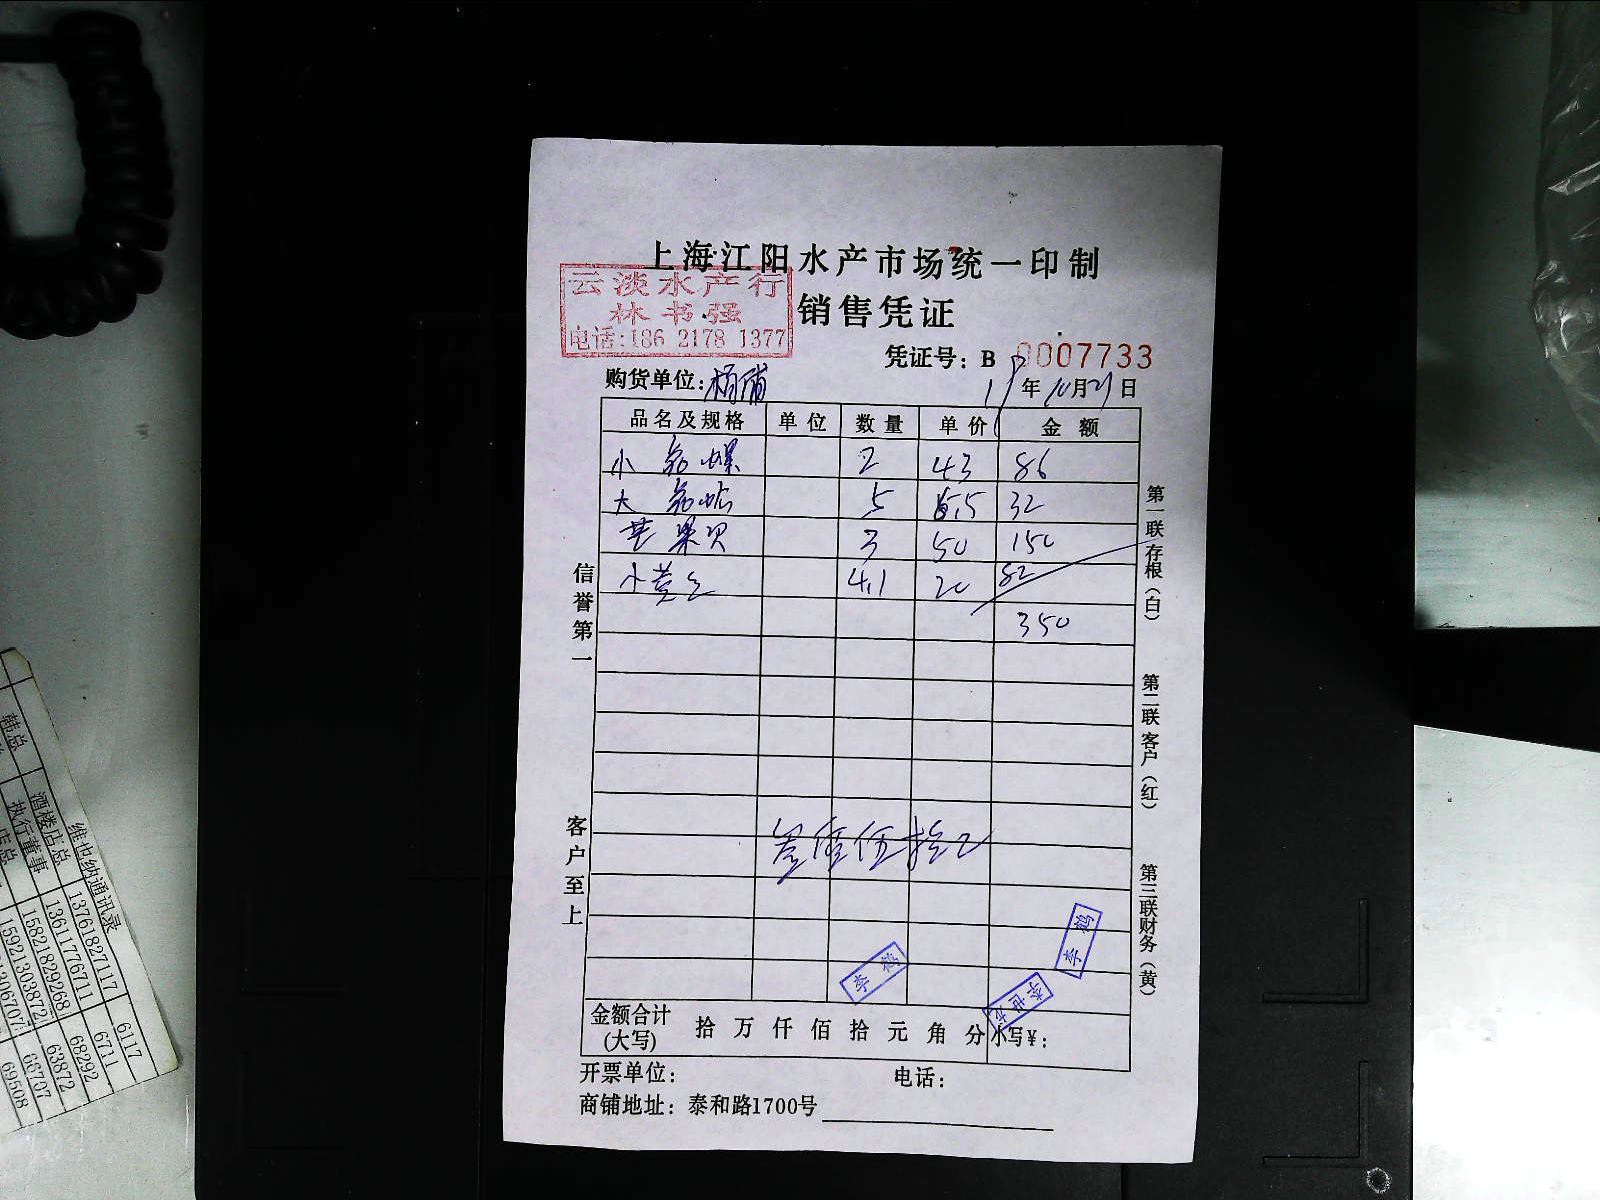 上海江阳水产市场统一印制
云淡水产行
林书强
电话:186 2178 1377
销售凭证
凭证号: B 0007733
购货单位: 杨浦 19年10月21日
品名及规格 单位 数量 单价 金额
小 2 43 86
大 5 6.5 32
苹果贝 3 50 150
小 4.1 20 82
350
叁佰伍拾元
信誉第一
客户至上
第一联存根(白)
第二联客户(红)
第三联财务(黄)
李鹤
李鹤
李世
金额合计(大写) 拾万仟佰拾元角分 小写¥:
开票单位: 电话:
商铺地址: 泰和路1700号
维也纳通讯录
韩总
酒楼店总 13761827117 6117
执行董事 13611776711 6711
店总 15821829268 68292
15921303872 63872
1306707 66707
69508